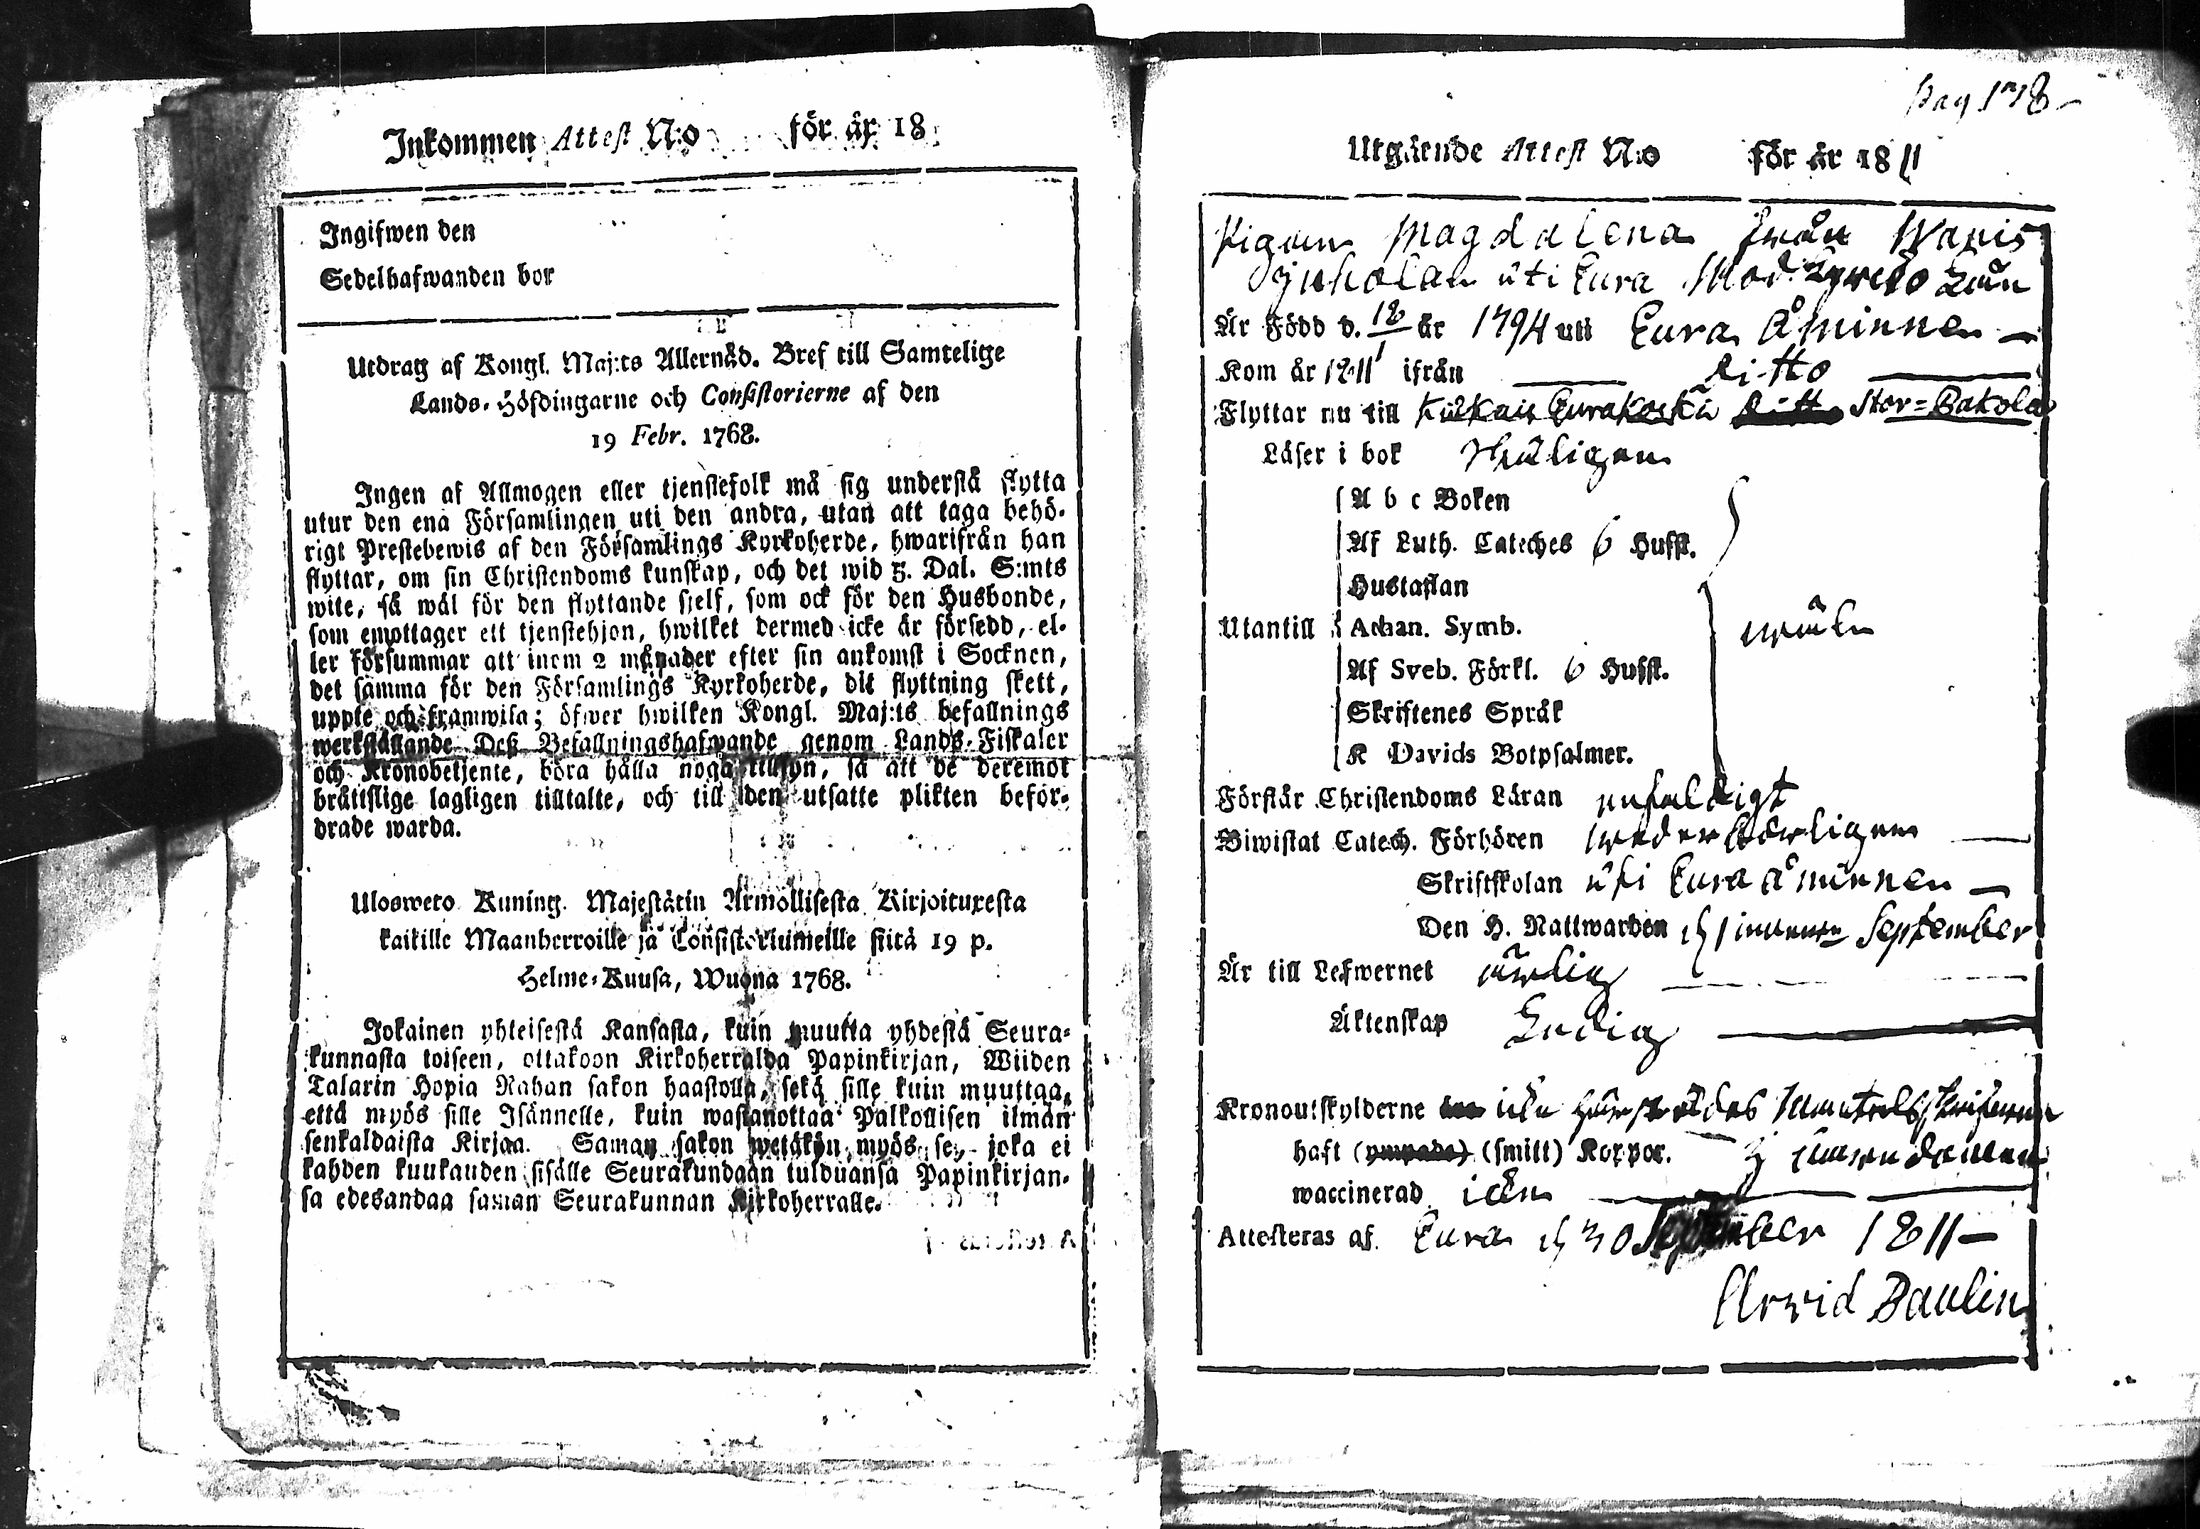 Inkommen Attest N:o för år 18
Ingifwen den
Sedelhafwanden bor
Utdrag af Kongl. Maj:ts Allernåd. Bref till Samtelige
Lands-Höfdingarne och Consistorierne af den
19 Febr. 1768.
Ingen af Allmogen eller tjenstefolk må sig understå flytta
utur den ena Församlingen uti den andra, utan att taga behö-
rigt Prestebewis af den Församlings Kyrkoherde, hwarifrån han
flyttar, om sin Christendoms kunskap, och det wid 5. Dal. S:mts
wite, så wäl för den flyttande sjelf, som ock för den Husbonde,
som emottager ett tjenstehjon, hwilket dermed icke är försedd, el-
ler försummar att inom 2 månader efter sin ankomst i Socknen,
det samma för den Församlings Kyrkoherde, dit flyttning skett,
uppte och framwisa; öfwer hwilken Kongl. Maj:ts befallnings
werkställande Deß Befallningshafwande genom Lands-Fiskaler
och Kronobetjente, böra hålla noga tillsyn, så att de deremot
bråttslige lagligen tilltalte, och till den utsatte plikten beför-
drade warda.
Ulosweto Kuning. Majestätin Armollisesta Kirjoituxesta
kaikille Maanherroille ja Consistoriumeille siitä 19 p.
Helme-Kuusa, Wuona 1768.
Jokainen yhteisestä Kansasta, kuin muutta yhdestä Seura-
kunnasta toiseen, ottakoon Kirkoherralda Papinkirjan, Wiiden
Talarin Hopia Rahan sakon haastolla, sekä sille kuin muuttaa,
että myös sille Isännelle, kuin wastanottaa Palkollisen ilman
senkaldaista Kirjaa. Saman sakon wetäkön myös se, joka ei
kahden kuukauden sisälle Seurakundaan tulduansa Papinkirjan-
sa edesandaa saman Seurakunnan Kirkoherralle.
Pag 178
Utgående Attest N:o för år 1811
Pigan Magdalena från
uti Eura Mod.
Är Född d. 18/1 år 1794 uti Eura Åminne
Kom år 1811 ifrån Ditto
Flyttar nu till Eurakoski Ditto Stor-Pakola
Läser i bok
A b c Boken
Af Luth. Cateches 6 Hufst.
Hustaflan
Utantill Athan. Symb.
Af Sveb. Förkl. 6 Hufst.
Skriftenes Språk
K Davids Botpsalmer.
Förstår Christendoms Läran enfaldigt
Biwistat Catech. Förhören wederbörligen
Skriftskolan uti Eura Åminne
Den H. Nattwarden September
Är till Lefwernet ärlig
Äktenskap Ledig
Kronoutskylderne
haft (ympade) (smitt) Koppor.
waccinerad
Attesteras af Eura d 30 September 1811
Arvid Paulin